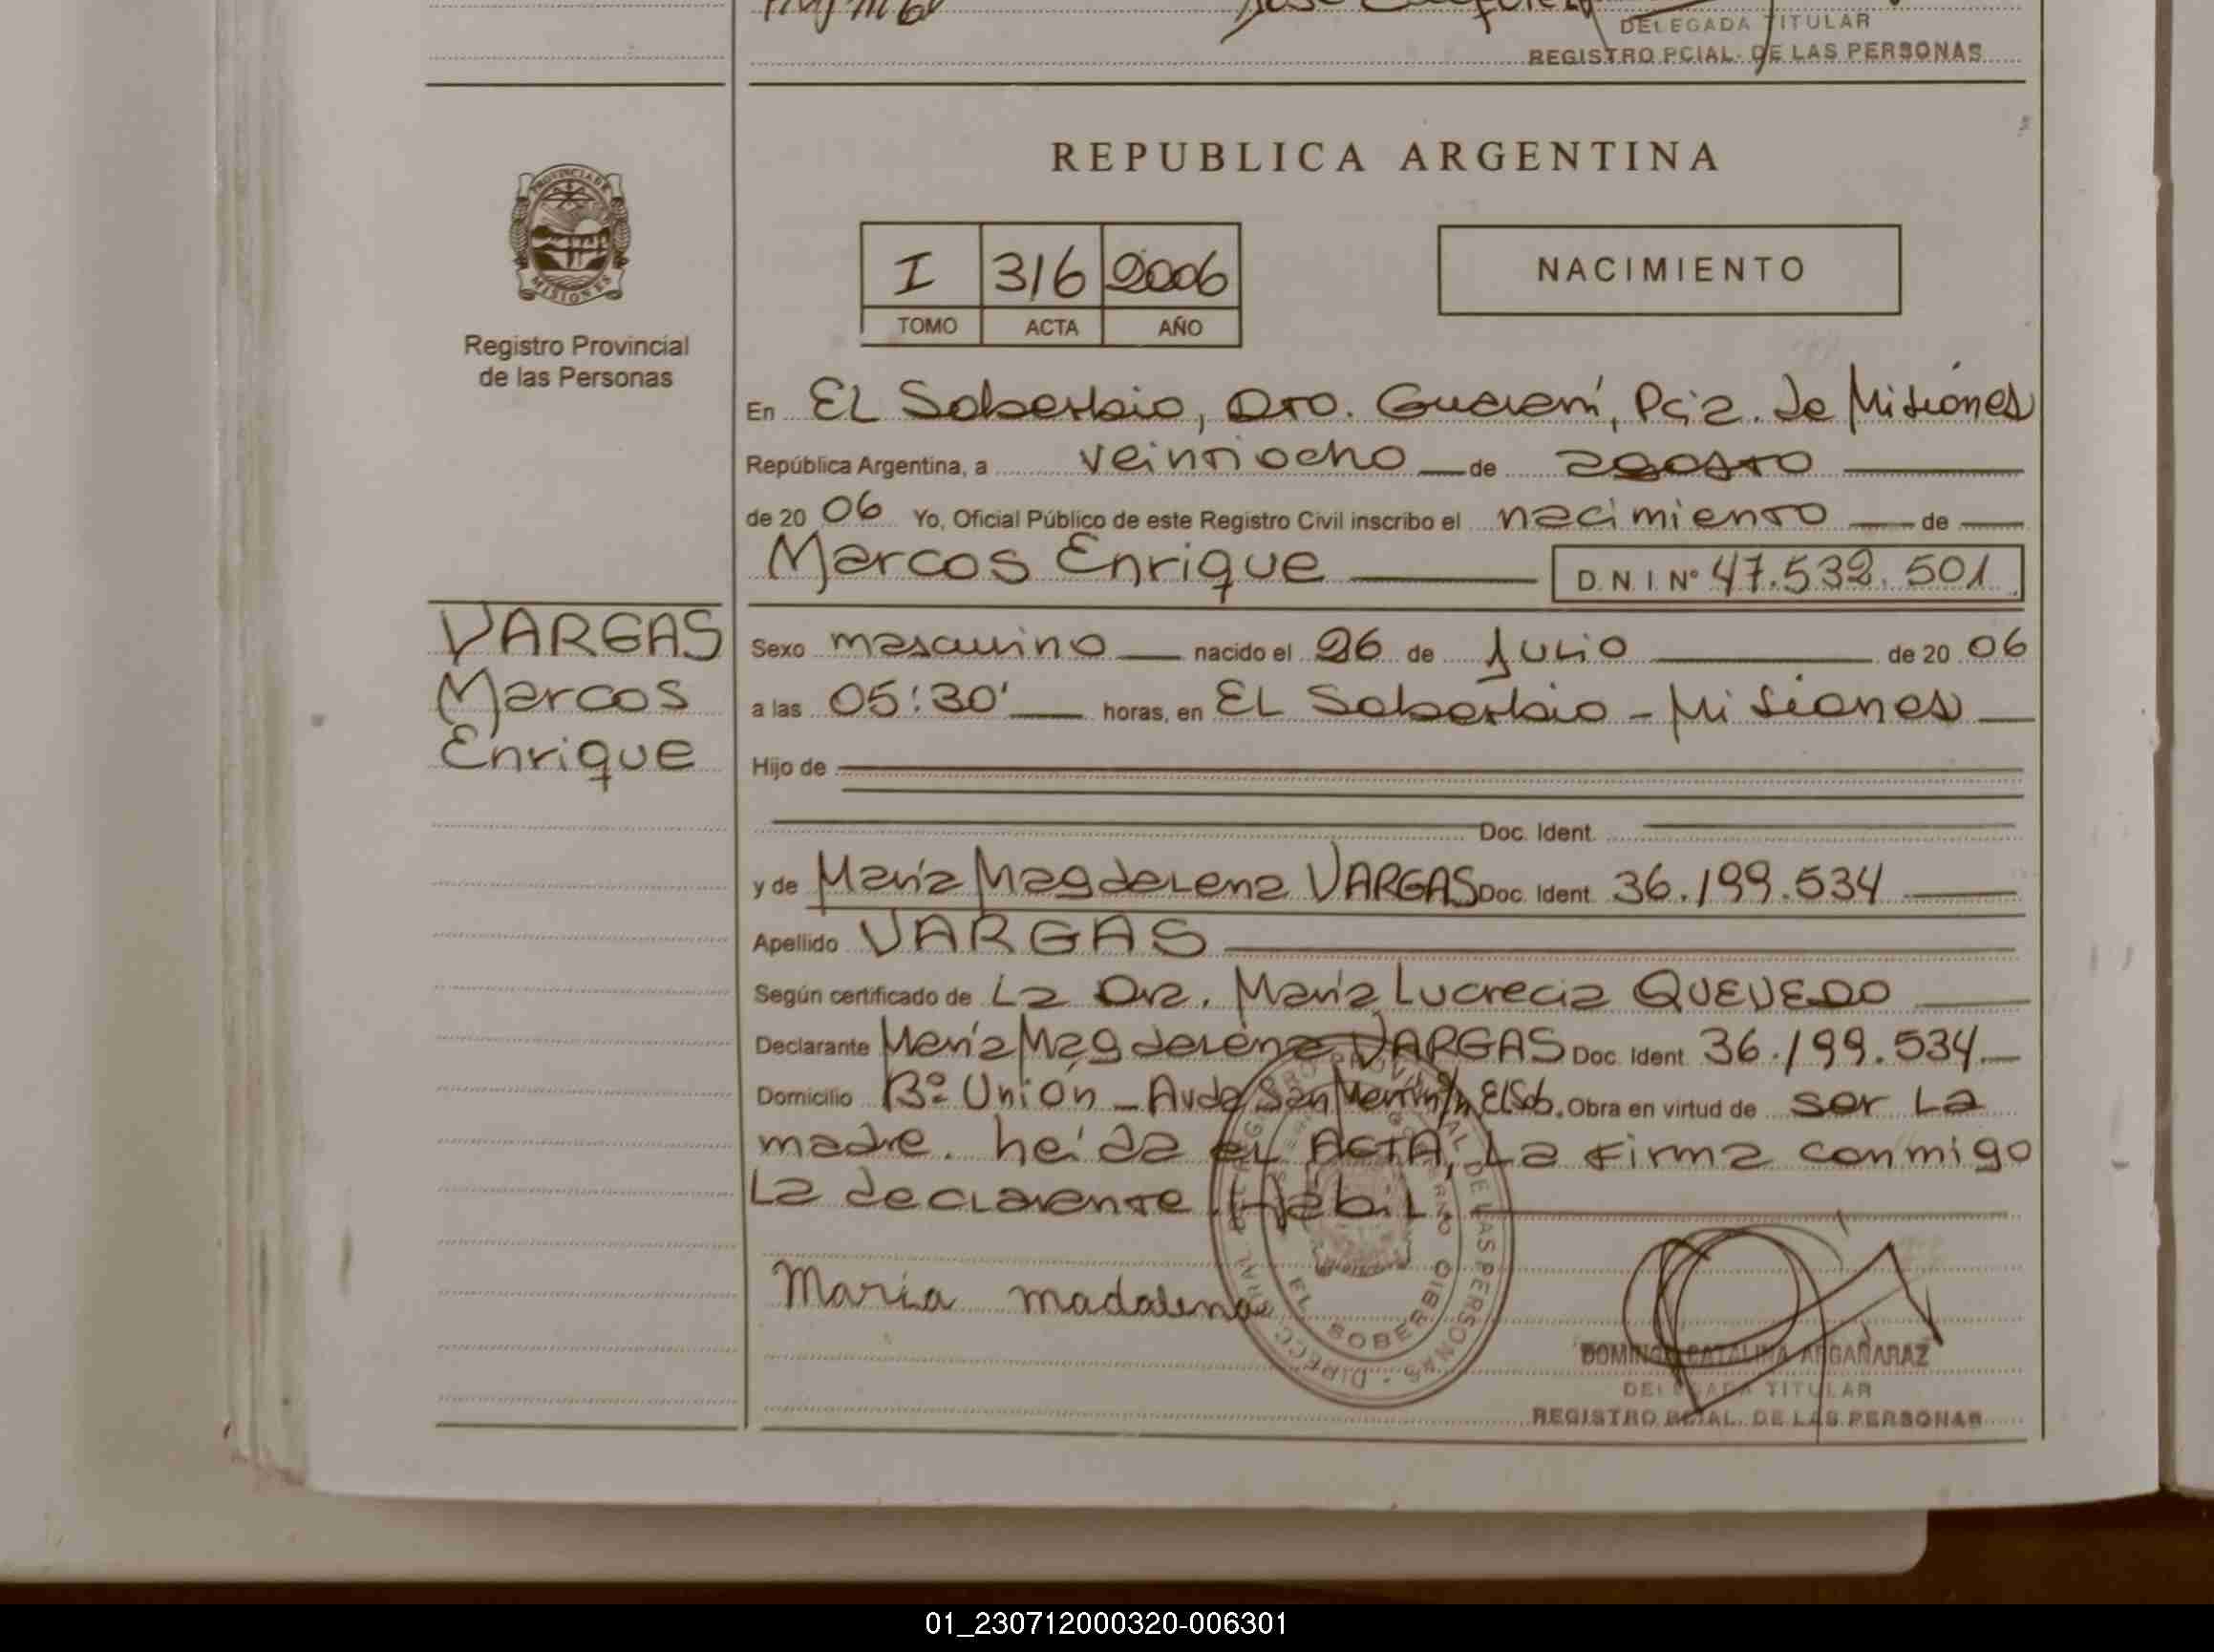 DELEGADA TITULAR
REGISTRO PCIAL. DE LAS PERSONAS
REPUBLICA ARGENTINA
PROVINCIA DE
MISIONES
Registro Provincial
de las Personas
I 316 2006
TOMO ACTA AÑO
NACIMIENTO
En EL Soberbio, Dto. Guaraní, Pcia. de Misiones
República Argentina, a veintiocho de agosto
de 20 06 Yo, Oficial Público de este Registro Civil inscribo el nacimiento de
Marcos Enrique D.N.I. Nº 47.532.501
VARGAS
Marcos
Enrique
Sexo masculino nacido el 26 de Julio de 20 06
a las 05:30' horas, en EL Soberbio - Misiones
Hijo de
Doc. Ident.
y de María Magdalena VARGAS Doc. Ident. 36.199.534
Apellido VARGAS
Según certificado de La Dra. María Lucrecia QUEVEDO
Declarante María Magdalena VARGAS Doc. Ident. 36.199.534
Domicilio Bº Unión - Avda San Martín El Sob. Obra en virtud de ser La
madre. Leída eL ACTA, La firma conmigo
La declarante Hábil.
María madalena
EL SOBERBIO
DOMINGA CATALINA ARGAÑARAZ
DELEGADA TITULAR
REGISTRO PCIAL. DE LAS PERSONAS
01_230712000320-006301